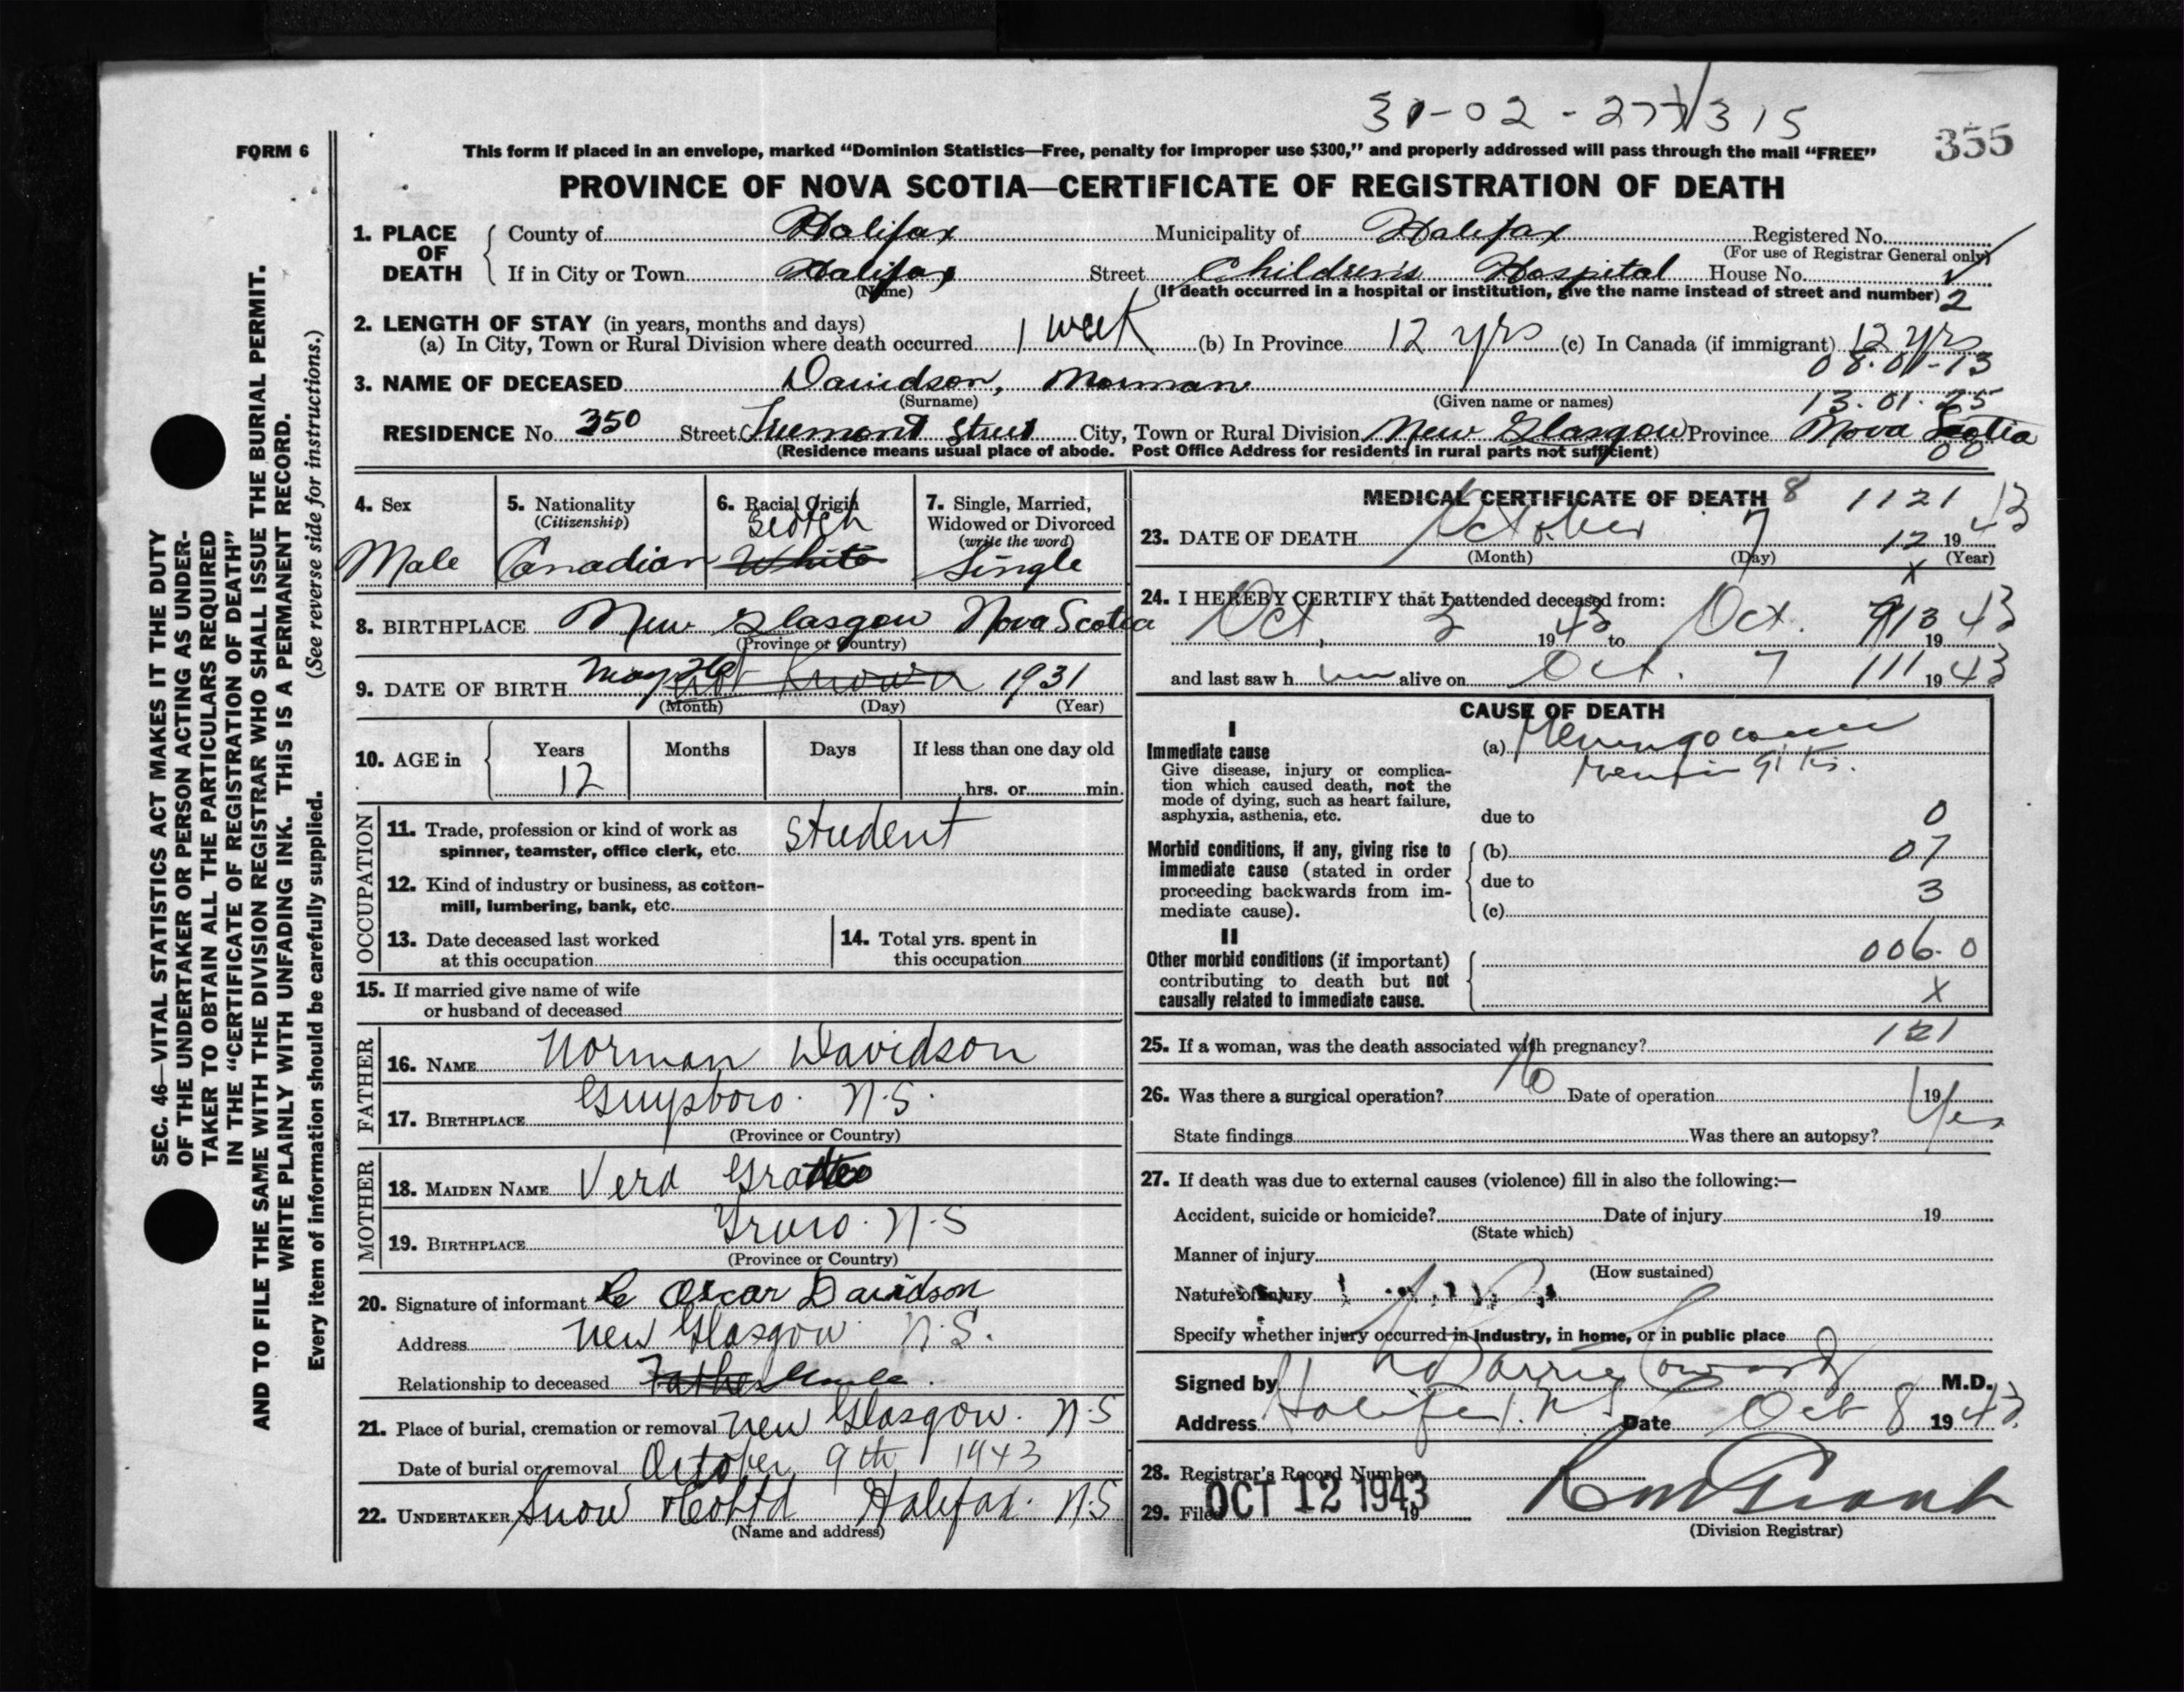 31-02-277/315
355
FORM 6
This form if placed in an envelope, marked “Dominion Statistics—Free, penalty for improper use $300,” and properly addressed will pass through the mail “FREE”
PROVINCE OF NOVA SCOTIA—CERTIFICATE OF REGISTRATION OF DEATH
1. PLACE OF DEATH
County of Halifax Municipality of Halifax Registered No.
(For use of Registrar General only)
If in City or Town Halifax Street Children's Hospital House No.
(Name) (If death occurred in a hospital or institution, give the name instead of street and number) 2
2. LENGTH OF STAY (in years, months and days)
(a) In City, Town or Rural Division where death occurred 1 week (b) In Province 12 yrs (c) In Canada (if immigrant) 12 yrs
08-01-13
3. NAME OF DECEASED Davidson, Norman
(Surname) (Given name or names)
13.01.25
RESIDENCE No. 350 Street City, Town or Rural Division New Glasgow Province Nova Scotia
(Residence means usual place of abode. Post Office Address for residents in rural parts not sufficient) 00
4. Sex Male
5. Nationality (Citizenship) Canadian
6. Racial Origin Scotch White
7. Single, Married, Widowed or Divorced (write the word) Single
8. BIRTHPLACE New Glasgow Nova Scotia
(Province or Country)
9. DATE OF BIRTH May 26 Not Known 1931
(Month) (Day) (Year)
10. AGE in Years 12 Months Days If less than one day old
hrs. or min.
OCCUPATION
11. Trade, profession or kind of work as spinner, teamster, office clerk, etc. Student
12. Kind of industry or business, as cotton-mill, lumbering, bank, etc.
13. Date deceased last worked at this occupation
14. Total yrs. spent in this occupation
15. If married give name of wife or husband of deceased
FATHER
16. NAME Norman Davidson
17. BIRTHPLACE Guysboro. N.S.
(Province or Country)
MOTHER
18. MAIDEN NAME Vera
19. BIRTHPLACE Truro. N.S
(Province or Country)
20. Signature of informant C Oscar Davidson
Address New Glasgow N.S.
Relationship to deceased Father Uncle.
21. Place of burial, cremation or removal New Glasgow. N.S
Date of burial or removal October 9th 1943
22. UNDERTAKER Snow & Co Ltd Halifax. N.S
(Name and address)
MEDICAL CERTIFICATE OF DEATH 8 1121
23. DATE OF DEATH October 7 12 1943
(Month) (Day) (Year)
x
24. I HEREBY CERTIFY that I attended deceased from:
Oct. 3 1943 to Oct. 913 1943
and last saw h im alive on Oct. 7 111 1943
CAUSE OF DEATH
I
Immediate cause
Give disease, injury or complication which caused death, not the mode of dying, such as heart failure, asphyxia, asthenia, etc.
(a) Meningococcic
Meningitis.
due to 0
Morbid conditions, if any, giving rise to immediate cause (stated in order proceeding backwards from immediate cause).
(b) 07
due to 3
(c)
II
Other morbid conditions (if important) contributing to death but not causally related to immediate cause.
006.0
X
25. If a woman, was the death associated with pregnancy? 121
26. Was there a surgical operation? No Date of operation 19
State findings Was there an autopsy? Yes
27. If death was due to external causes (violence) fill in also the following:—
Accident, suicide or homicide? Date of injury 19
(State which)
Manner of injury
(How sustained)
Nature of injury
Specify whether injury occurred in industry, in home, or in public place
Signed by N Barrie Coward M.D.
Address Halifax, N.S. Date Oct 8 1943
28. Registrar's Record Number
29. Filed OCT 12 1943 19
(Division Registrar)
SEC. 46—VITAL STATISTICS ACT MAKES IT THE DUTY
OF THE UNDERTAKER OR PERSON ACTING AS UNDER-
TAKER TO OBTAIN ALL THE PARTICULARS REQUIRED
IN THE “CERTIFICATE OF REGISTRATION OF DEATH”
AND TO FILE THE SAME WITH THE DIVISION REGISTRAR WHO SHALL ISSUE THE BURIAL PERMIT.
WRITE PLAINLY WITH UNFADING INK. THIS IS A PERMANENT RECORD.
Every item of information should be carefully supplied. (See reverse side for instructions.)